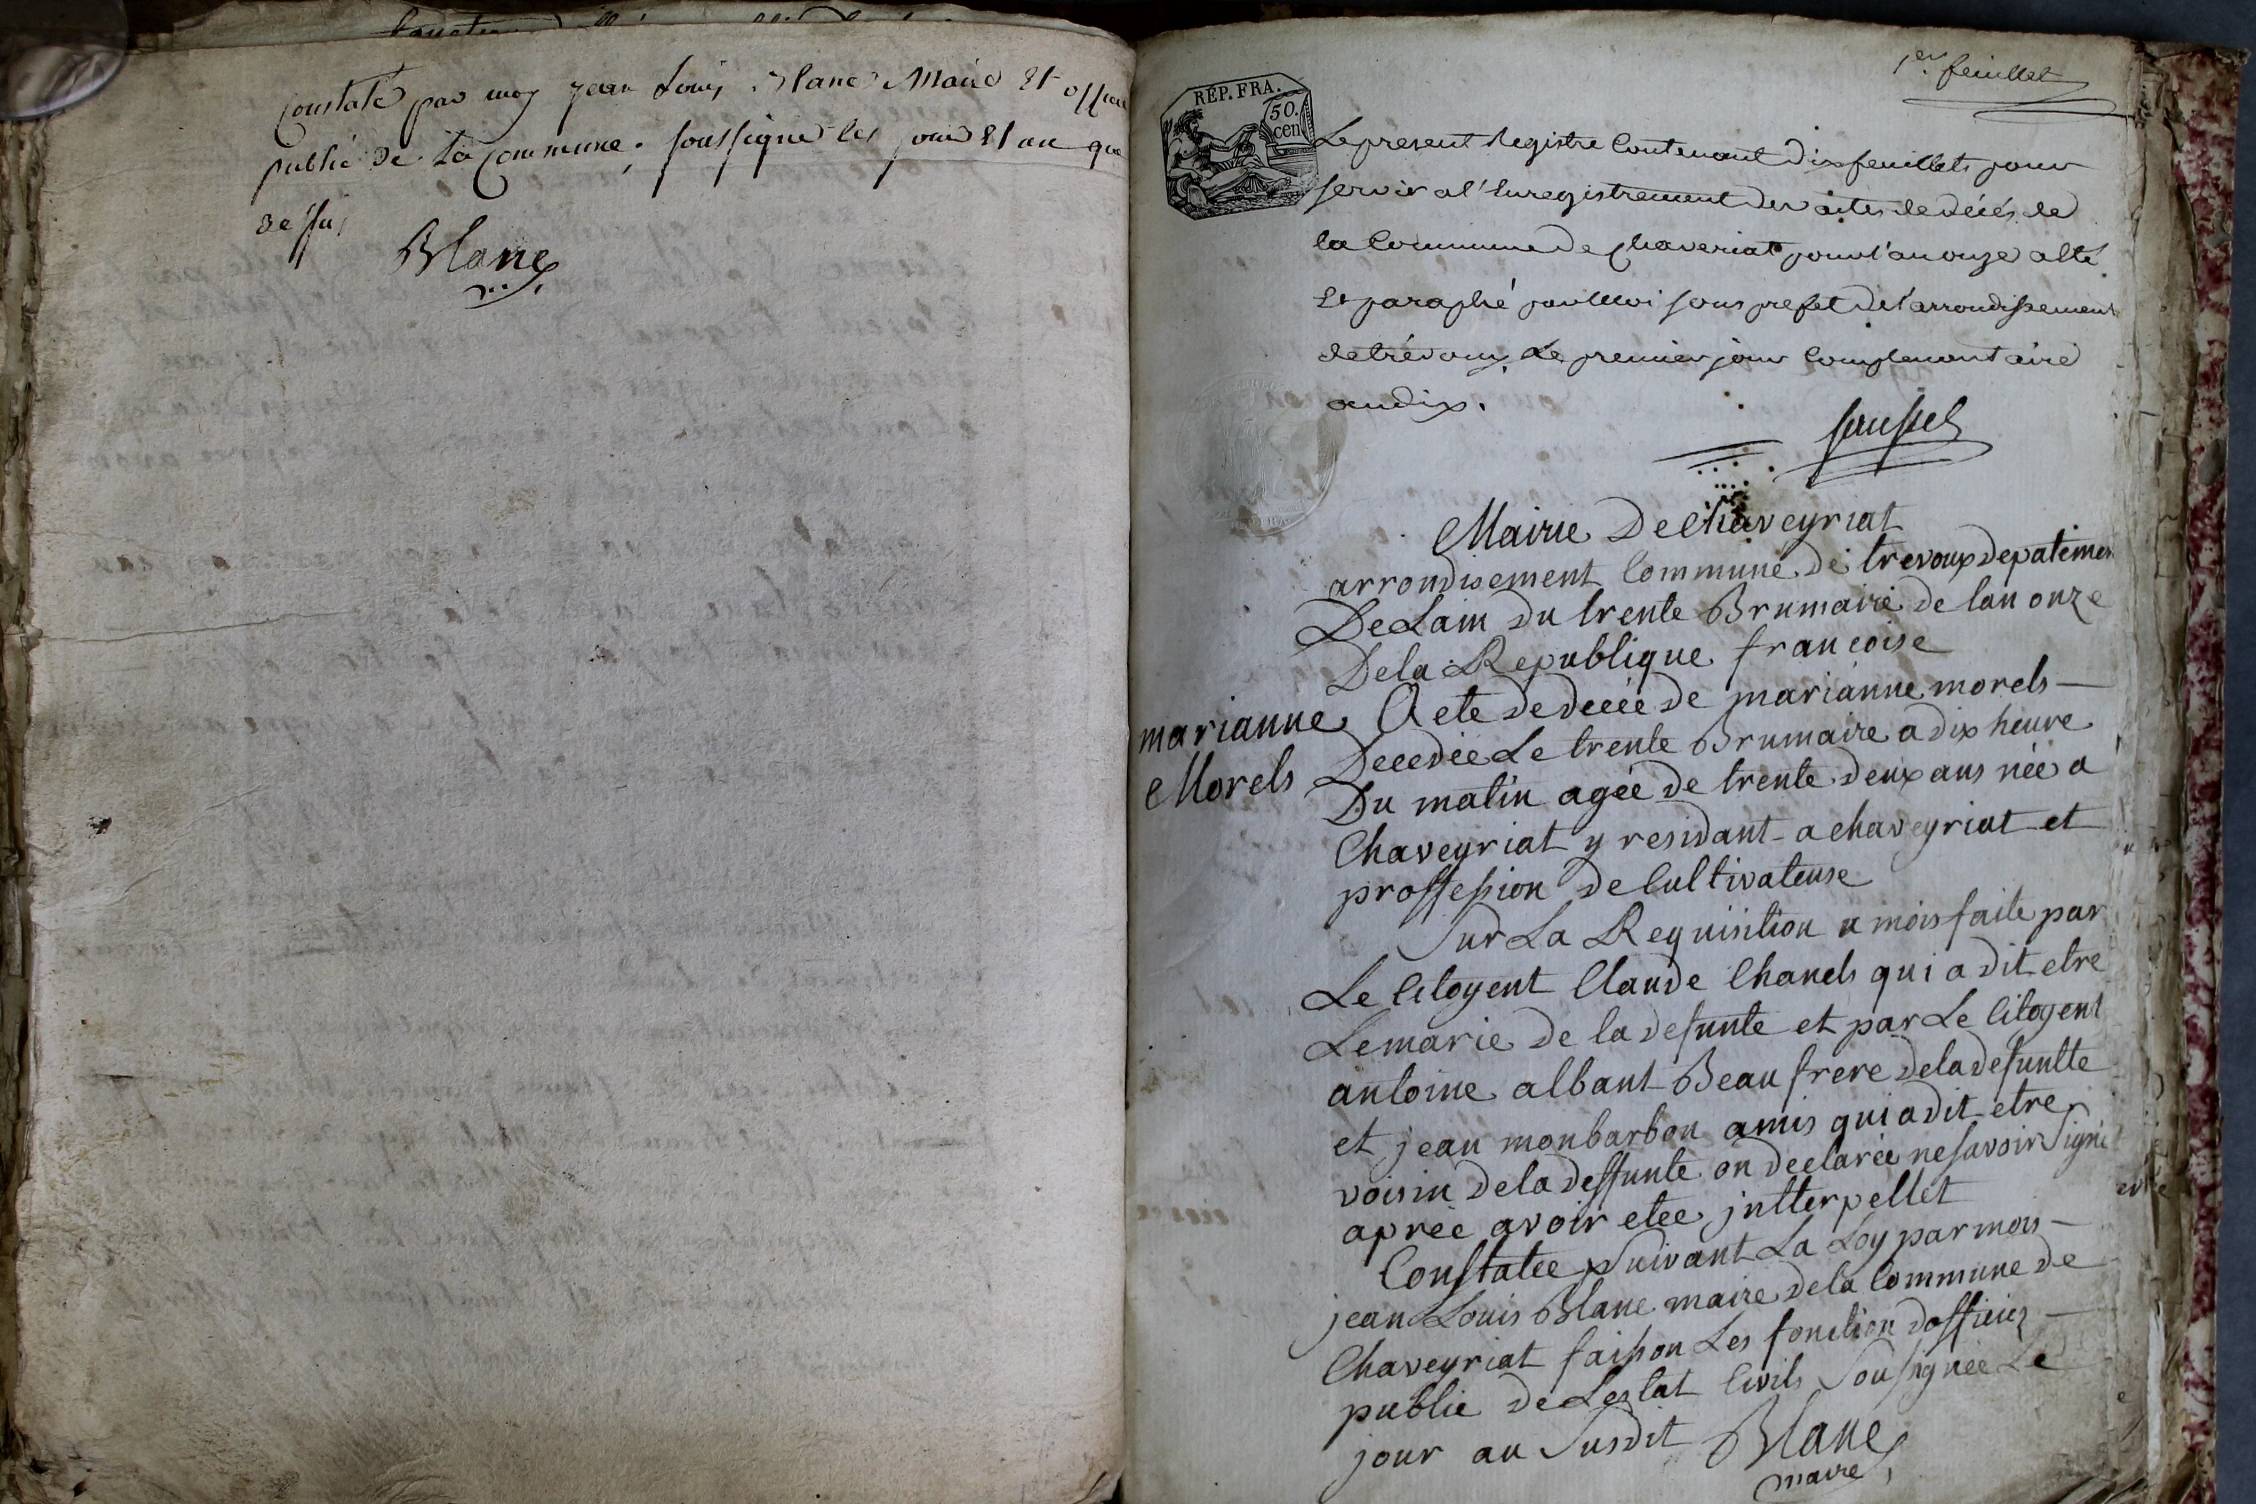 Constaté par moy jean Louis Blanc Maire Et officier
publié de La Commune. soussigné les jour Et an que
dessus
Blanc
1er feuillet
REP. FRA.
50.
cen
Le present Registre Contenant Dix feuillets pour
servir a l'Enregistrement des actes de décés de
la Commune de Chaveriat pour l'an onze a été
Et paraphé par Moi sous prefet de l'arrondissement
de trévoux, Le premier jour Complementaire
an dix.
Mairie De Chaveyriat
arrondisement Commune de trevoux depatemen
De Lain du trente Brumaire de lan onze
De la Republique francoise
marianne
Morels
Acte de deceé de marianne morels
Decedée Le trente Brumaire a dix heure
Du matin agée De trente deux ans néé a
Chaveyriat y residant a chaveyriat et
proffession de Cultivateuse
Sur La Requisition a mois faite par
Le Citoyent Claude Chanels qui a dit etre
Le marie de la defunte et par Le Citoyent
antoine albant Beau frere de la defuntte
et jean monbarbon amis qui a dit etre
voisin de la deffunte on declarée ne savoir Signé
aprée avoir etee jntterpellet
Constatée Suivant La Loy par mois
jean Louis Blanc maire de la Commune de
Chaveyriat faison Les fonction dofficier
publie de Lestat Civils Sousignée Le
jour an Susdit Blanc
maire